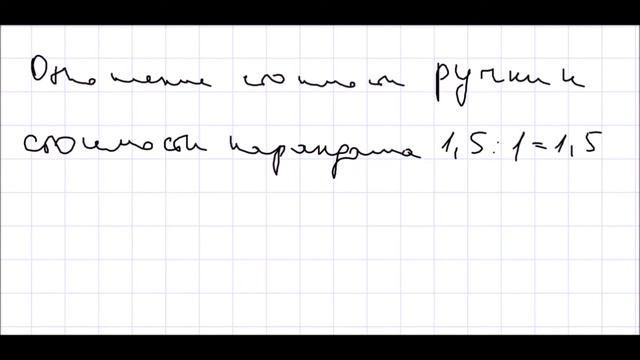 Отношение стоимости ручки к
стоимости карандаша 1,5 : 1 = 1,5